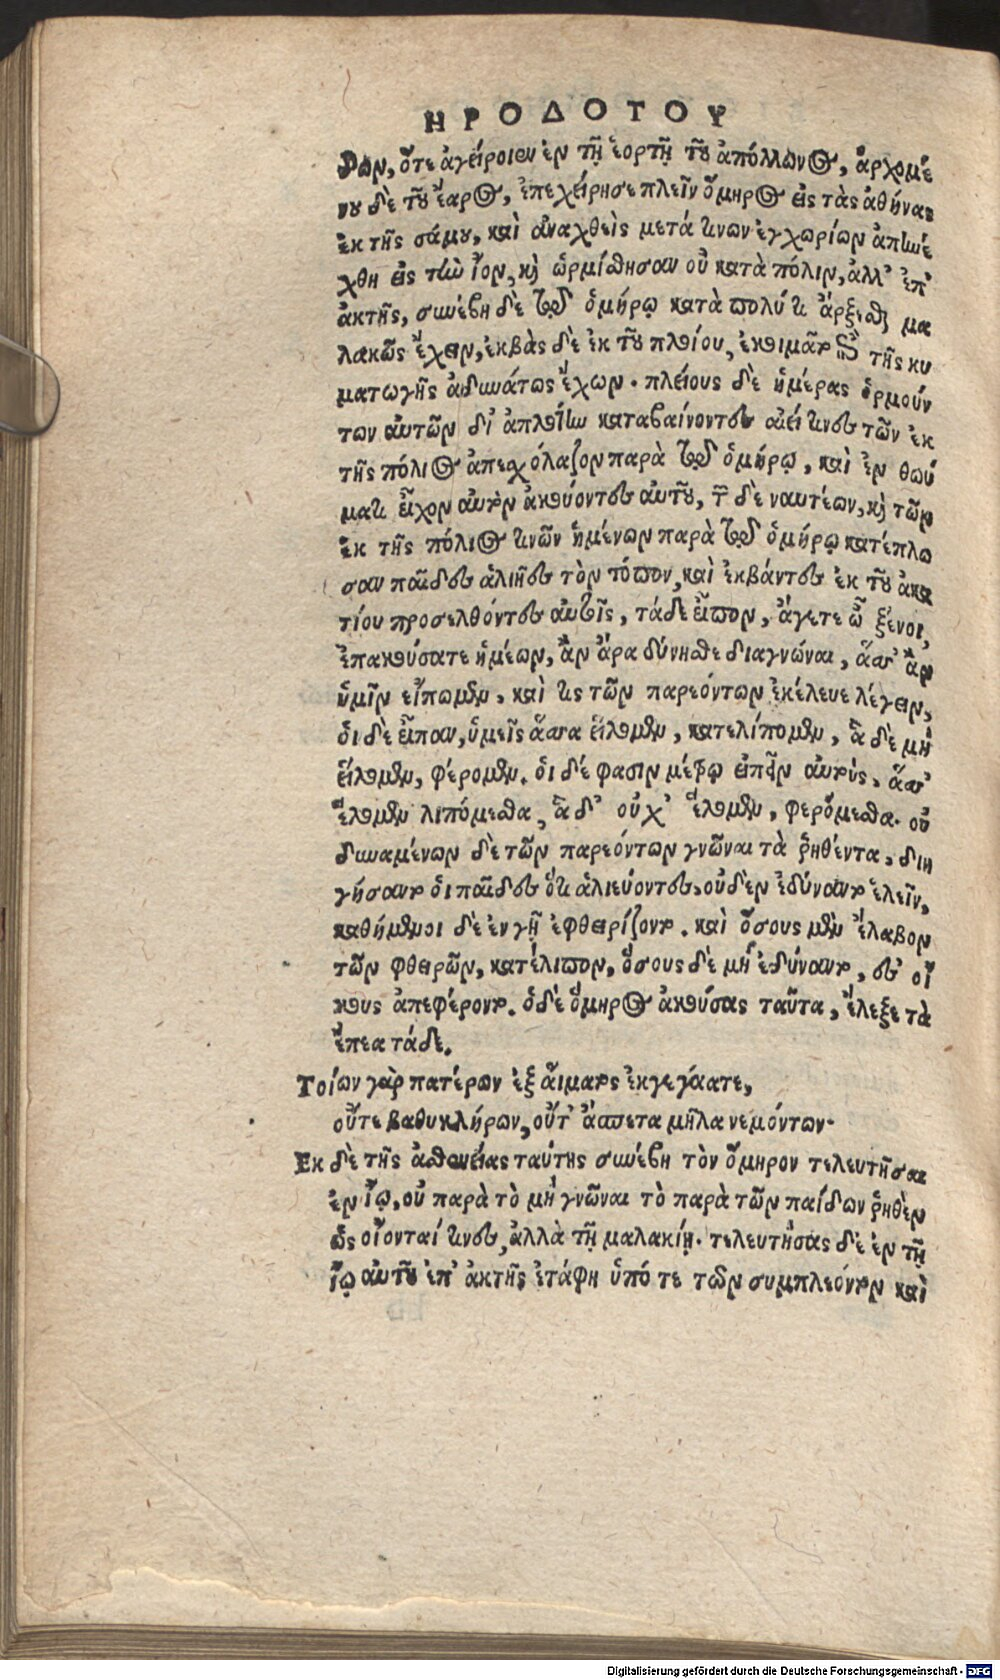 ΗΡΟΔΟΤΟΥ
δων, ὅτε ἀγείροιεν ἐν τῇ ἑορτῇ τοῦ ἀπόλλωνος, ἀρχομέ
νου δὲ τοῦ ἔαρος, ἐπεχείρησε πλεῖν ὅμηρος εἰς τὰς ἀθήνας
ἐκ τῆς σάμου, καὶ ἀναχθεὶς μετά τινων ἐγχωρίων ἀπηνέ
χθη εἰς τὴν ἴον, καὶ ὡρμίσθησαν οὐ κατὰ πόλιν, ἀλλ' ἐπ'
ἀκτῆς, συνέβη δὲ τῷ ὁμήρῳ κατὰ πολύ τι ἄρξεσθαι μα
λακῶς ἔχειν, ἐκβὰς δὲ ἐκ τοῦ πλοίου, ἐκοιμᾶτο ἐπὶ τῆς κυ
ματωγῆς ἀδυνάτως ἔχων. πλείους δὲ ἡμέρας ὁρμούν
των αὐτῶν δι' ἀπλοίην καταβαίνοντες αἰεί τινες τῶν ἐκ
τῆς πόλιος ἀπεσχόλαζον παρὰ τῷ ὁμήρῳ, καὶ ἐν θωύ
ματι εἶχον αὐτὸν ἀκούοντες αὐτοῦ, τῶν δὲ ναυτέων, καὶ τῶν
ἐκ τῆς πόλιος τινῶν ἡμένων παρὰ τῷ ὁμήρῳ κατέπλω
σαν παῖδες ἁλιῆες τὸν τόπον, καὶ ἐκβάντες ἐκ τοῦ ἀκα
τίου προσελθόντες αὐτοῖς, τάδε εἶπον, ἄγετε ὦ ξένοι,
ἐπακούσατε ἡμέων, ἂν ἄρα δύνησθε διαγνῶναι, ἅσσ' ἂν
ὑμῖν εἴπωμεν, καί τις τῶν παρεόντων ἐκέλευε λέγειν,
οἱ δὲ εἶπαν, ὑμεῖς ἅσσα εἵλομεν, κατελίπομεν, ἃ δὲ μὴ
εἵλομεν, φέρομεν. οἱ δέ φασιν μέτρῳ εἰπεῖν αὐτούς, ἅσσ'
ἕλομεν λιπόμεσθα, ἃ δ' οὐχ' ἕλομεν, φερόμεσθα. οὐ
δυναμένων δὲ τῶν παρεόντων γνῶναι τὰ ῥηθέντα, διη
γήσαντο οἱ παῖδες ὅτι ἁλιεύοντες, οὐδὲν ἐδύναντο ἑλεῖν,
καθήμενοι δὲ ἐν γῇ ἐφθειρίζοντο. καὶ ὅσους μὲν ἔλαβον
τῶν φθειρῶν, κατέλιπον, ὅσους δὲ μὴ ἐδύναντο, ἐς οἴ
κους ἀπεφέροντο. ὁ δὲ ὅμηρος ἀκούσας ταῦτα, ἔλεξε τὰ
ἔπεα τάδε.
Τοίων γὰρ πατέρων ἐξ αἵματος ἐκγεγάατε,
οὔτε βαθυκλήρων, οὔτ' ἄσπετα μῆλα νεμόντων.
Ἐκ δὲ τῆς ἀσθενείας ταύτης συνέβη τὸν ὅμηρον τελευτῆσαι
ἐν ἴῳ, οὐ παρὰ τὸ μὴ γνῶναι τὸ παρὰ τῶν παίδων ῥηθὲν
ὡς οἴονταί τινες, ἀλλὰ τῇ μαλακίῃ. τελευτήσας δὲ ἐν τῇ
ἴῳ αὐτοῦ ἐπ' ἀκτῆς ἐτάφη ὑπό τε τῶν συμπλεόντων καὶ
Digitalisierung gefördert durch die Deutsche Forschungsgemeinschaft - DFG